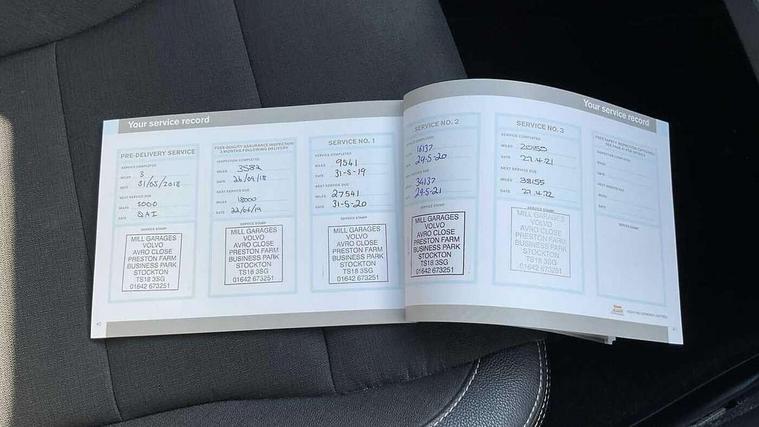 Your service record
PRE-DELIVERY SERVICE
SERVICE COMPLETED
MILES 3
DATE 31/05/2018
NEXT SERVICE DUE
MILES 3000
DATE QAI
SERVICE STAMP
MILL GARAGES
VOLVO
AVRO CLOSE
PRESTON FARM
BUSINESS PARK
STOCKTON
TS18 3SG
01642 673251
FREE QUALITY ASSURANCE INSPECTION
3 MONTHS FOLLOWING DELIVERY
INSPECTION COMPLETED
MILES 3582
DATE
NEXT SERVICE DUE
MILES 18000
DATE
SERVICE STAMP
MILL GARAGES
VOLVO
AVRO CLOSE
PRESTON FARM
BUSINESS PARK
STOCKTON
TS18 3SG
01642 673251
SERVICE NO. 1
SERVICE COMPLETED
MILES 9541
DATE 31-5-19
NEXT SERVICE DUE
MILES 27541
DATE 31-5-20
SERVICE STAMP
MILL GARAGES
VOLVO
AVRO CLOSE
PRESTON FARM
BUSINESS PARK
STOCKTON
TS18 3SG
01642 673251
Your service record
SERVICE NO. 2
16137
29-5-20
34137
29-5-21
SERVICE STAMP
MILL GARAGES
VOLVO
AVRO CLOSE
PRESTON FARM
BUSINESS PARK
STOCKTON
TS18 3SG
01642 673251
SERVICE NO. 3
SERVICE COMPLETED
MILES 20155
DATE 27.4.21
NEXT SERVICE DUE
MILES 38155
DATE 27.4.22
SERVICE STAMP
MILL GARAGES
VOLVO
AVRO CLOSE
PRESTON FARM
BUSINESS PARK
STOCKTON
TS18 3SG
01642 673251
MILES
DATE
NEXT SERVICE DUE
MILES
DATE
SERVICE STAMP